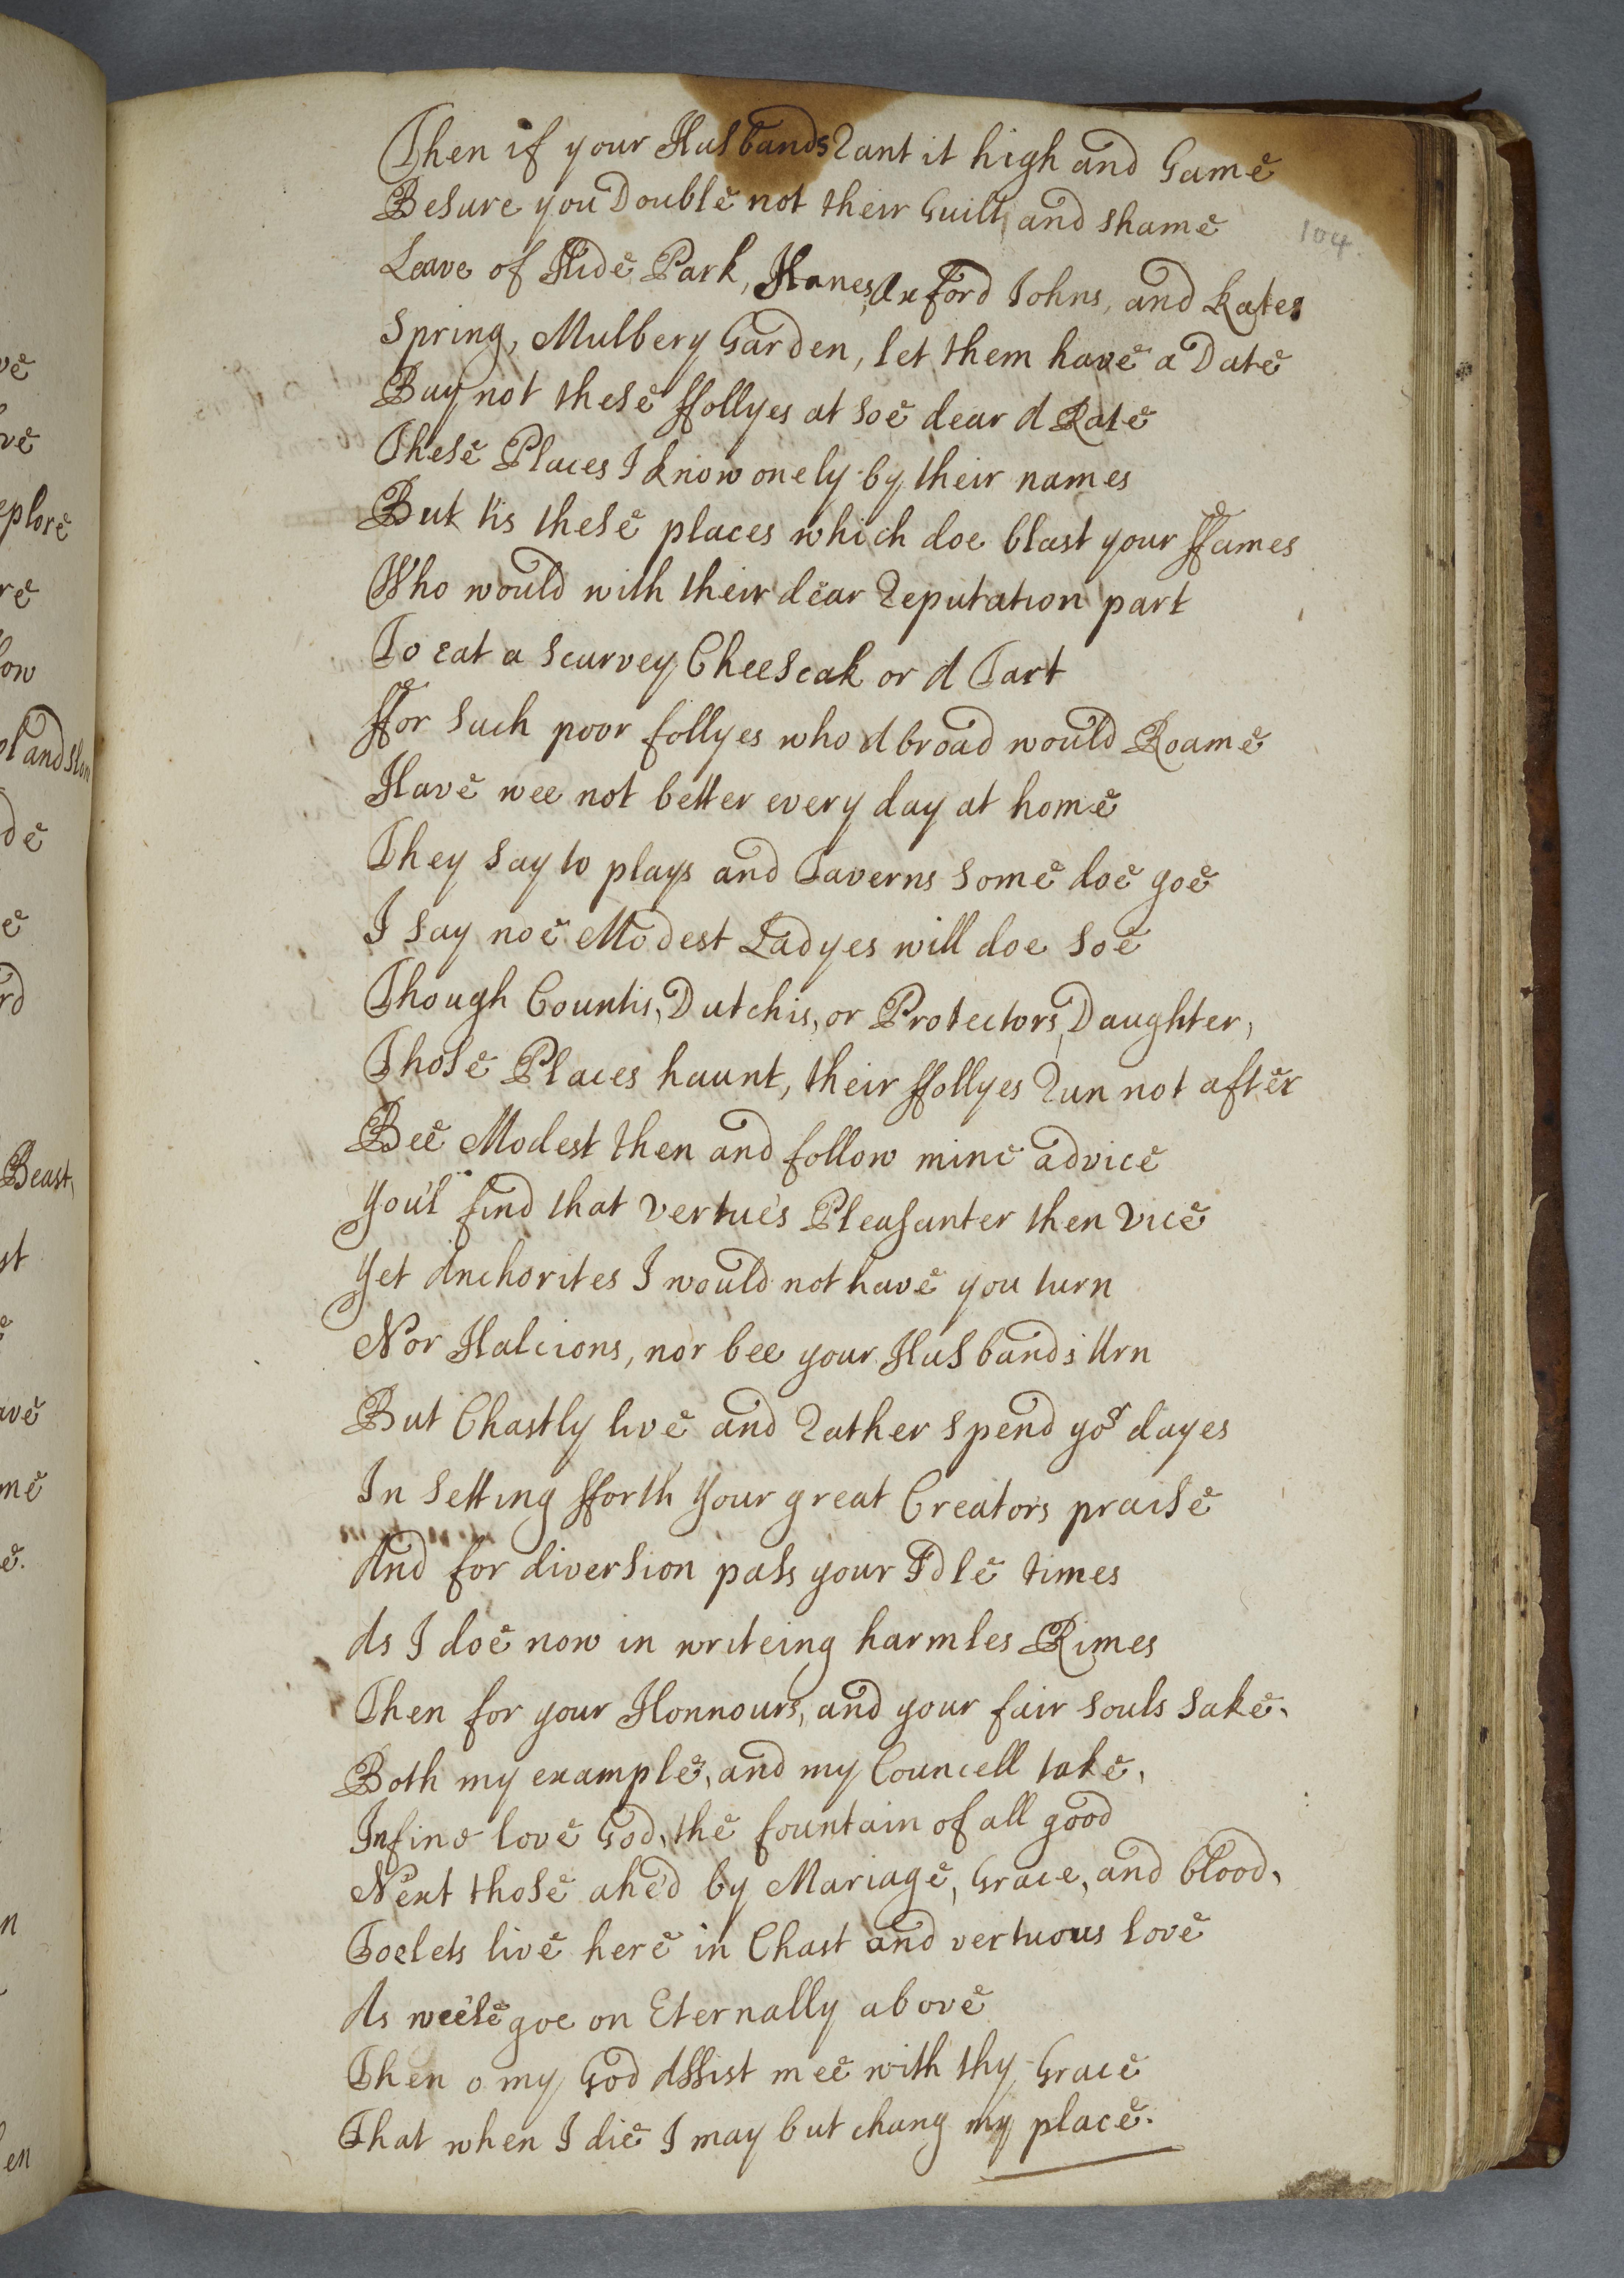 Then if your Husbands Rant it high and Game
Besure you Double not their Guilt, and shame
104
Leave of Hide Park, Hanes, Oxford Johns, and Kates
Spring, Mulbery Garden, let them have a Date
Buy not these ffollyes at soe dear A Rate
These Places I know onely by their names
But tis these places which doe blast your ffames
Who would with their dear Reputation part
To eat a scurvey Cheescak or A Tart
ffor such poor follyes who Abroad would Roame
Have wee not better every day at home
They say to plays and Taverns some doe goe
I say noe Modest Ladyes will doe soe
Though Countis, Dutchis, or Protectors, Daughter,
Those Places haunt, their ffollyes Run not after
Bee Modest then and follow mine advice
You'l find that vertue's Pleasanter then vice
Yet Anchorites I would not have you turn
Nor Halcions, nor bee your Husbands Urn
But Chastly live and Rather spend yor dayes
In setting fforth Your great Creators praise
And for diversion pass your Idle times
As I doe now in writeing harmles Rimes
Then for your Honnours, and your fair souls sake,
Both my example, and my Councell take,
Infine love God, the fountain of all good
Next those alied by Mariage, Grace, and blood,
Soe lets live here in Chast and vertuous love
As wee'le goe on Eternally above
Then o my God Assist mee with thy Grace
That when I die I may but chang my place.
ve
ve
eplore
re
ow
and
de
e
rd
Beast,
st
ave
me
e.
n
en